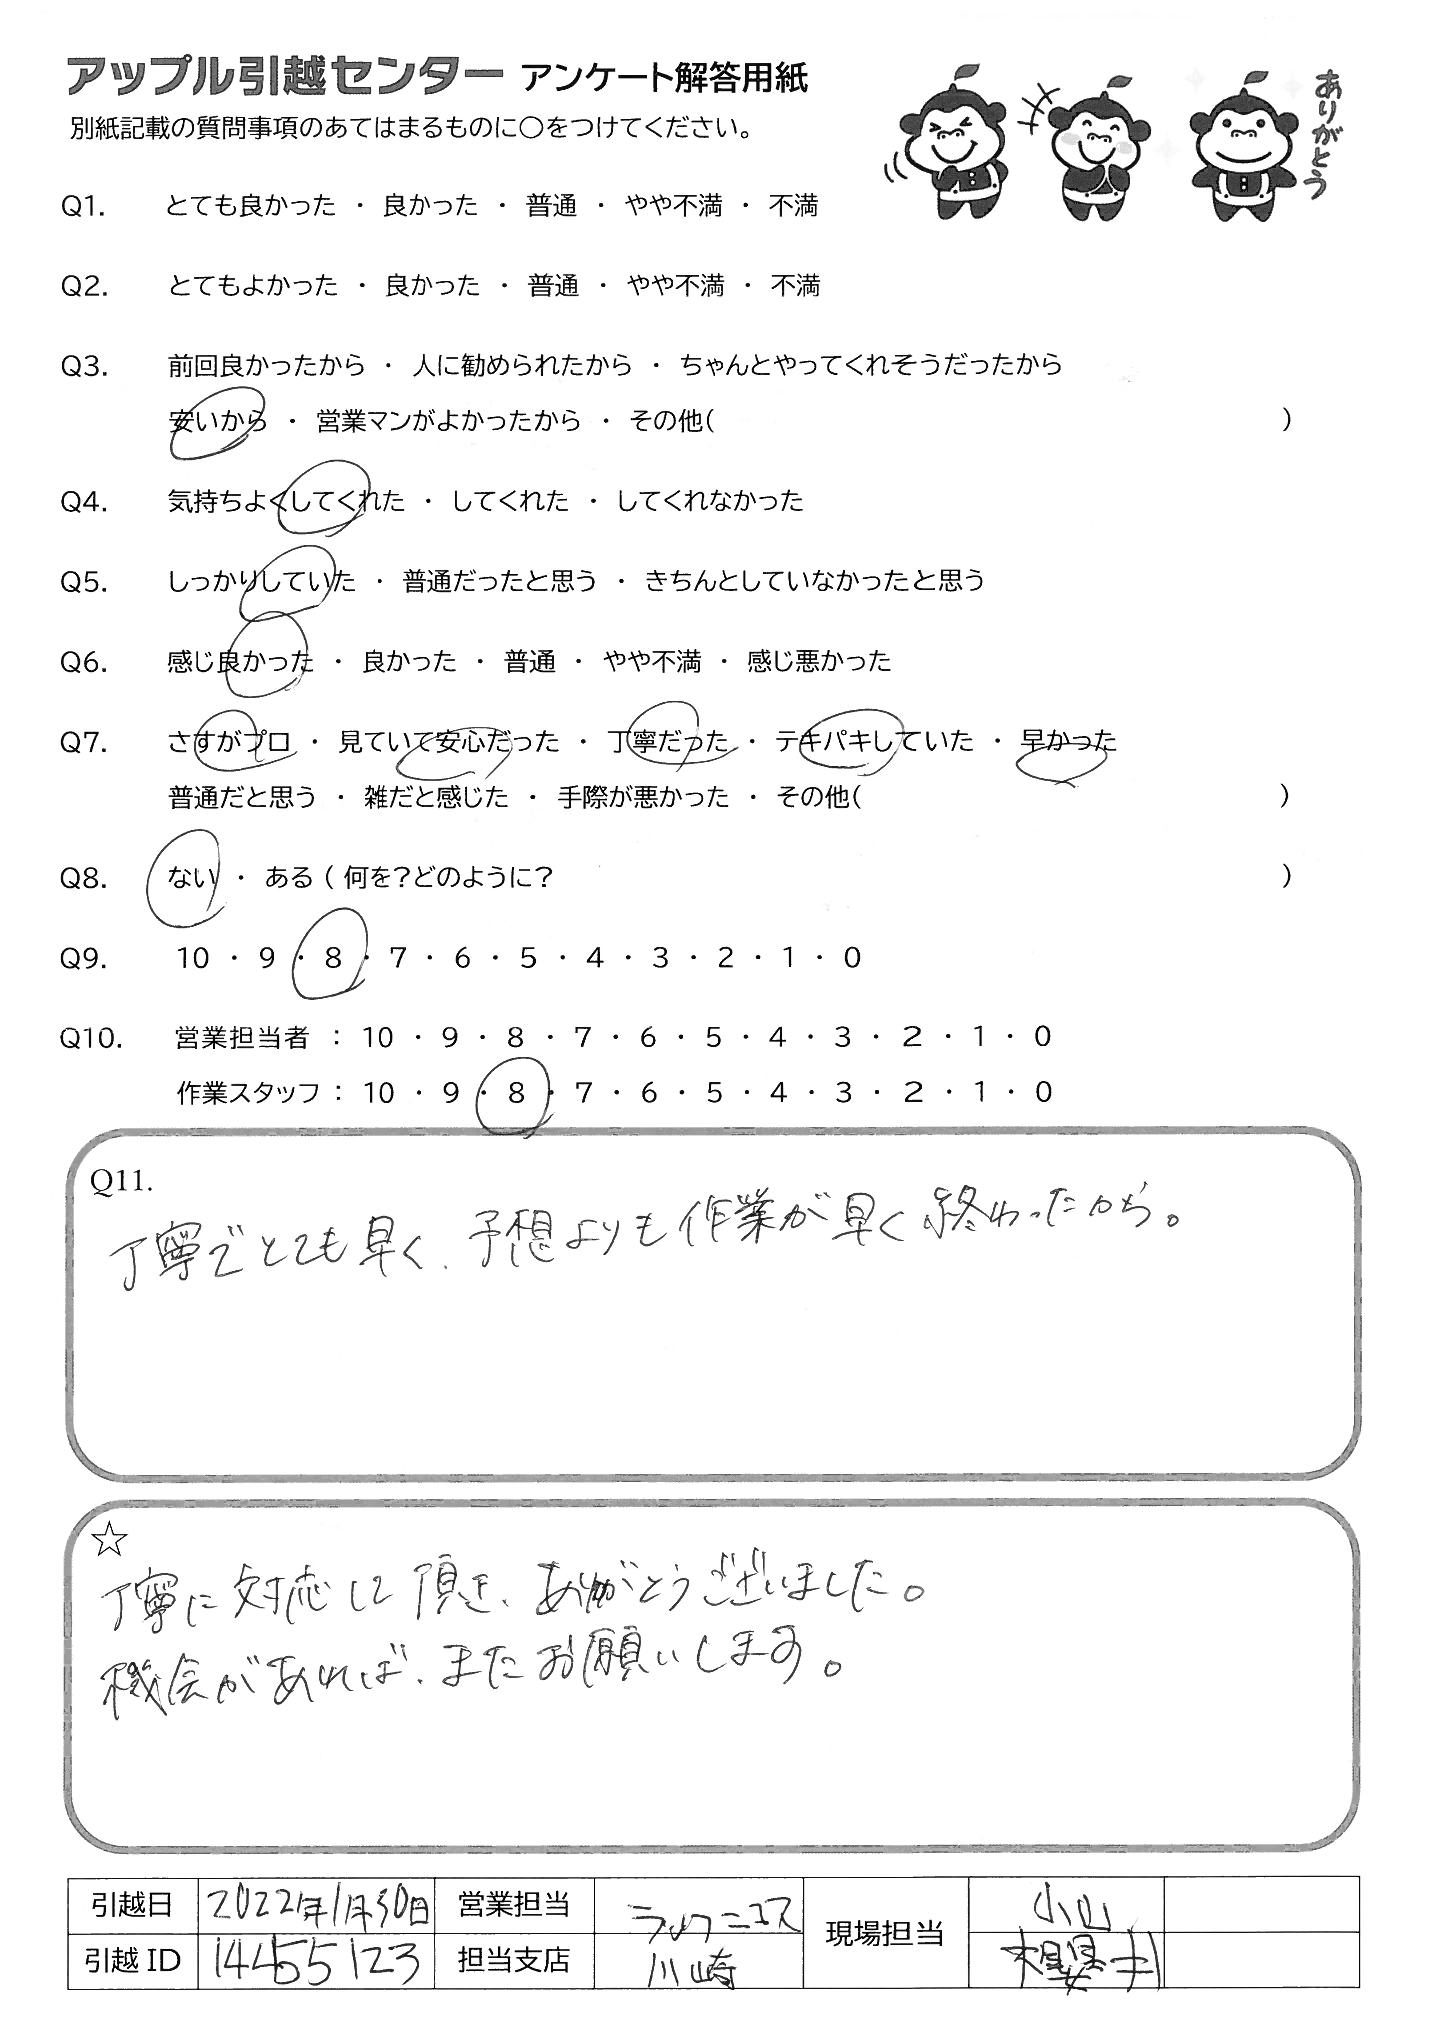 アップル引越センター アンケート解答用紙
ありがとう
別紙記載の質問事項のあてはまるものに○をつけてください。
Q1. とても良かった ・ 良かった ・ 普通 ・ やや不満 ・ 不満
Q2. とてもよかった ・ 良かった ・ 普通 ・ やや不満 ・ 不満
Q3. 前回良かったから ・ 人に勧められたから ・ ちゃんとやってくれそうだったから
安いから ・ 営業マンがよかったから ・ その他( )
Q4. 気持ちよくしてくれた ・ してくれた ・ してくれなかった
Q5. しっかりしていた ・ 普通だったと思う ・ きちんとしていなかったと思う
Q6. 感じ良かった ・ 良かった ・ 普通 ・ やや不満 ・ 感じ悪かった
Q7. さすがプロ ・ 見ていて安心だった ・ 丁寧だった ・ テキパキしていた ・ 早かった
普通だと思う ・ 雑だと感じた ・ 手際が悪かった ・ その他( )
Q8. ない ・ ある ( 何を?どのように? )
Q9. 10 ・ 9 ・ 8 ・ 7 ・ 6 ・ 5 ・ 4 ・ 3 ・ 2 ・ 1 ・ 0
Q10. 営業担当者 : 10 ・ 9 ・ 8 ・ 7 ・ 6 ・ 5 ・ 4 ・ 3 ・ 2 ・ 1 ・ 0
作業スタッフ : 10 ・ 9 ・ 8 ・ 7 ・ 6 ・ 5 ・ 4 ・ 3 ・ 2 ・ 1 ・ 0
Q11.
丁寧でとても早く、予想よりも作業が早く終わったから。
☆
丁寧に対応して頂き、ありがとうございました。
機会があれば、またお願いします。
引越日 2022年1月30日 営業担当 現場担当 小山
引越 ID 14455123 担当支店 川崎